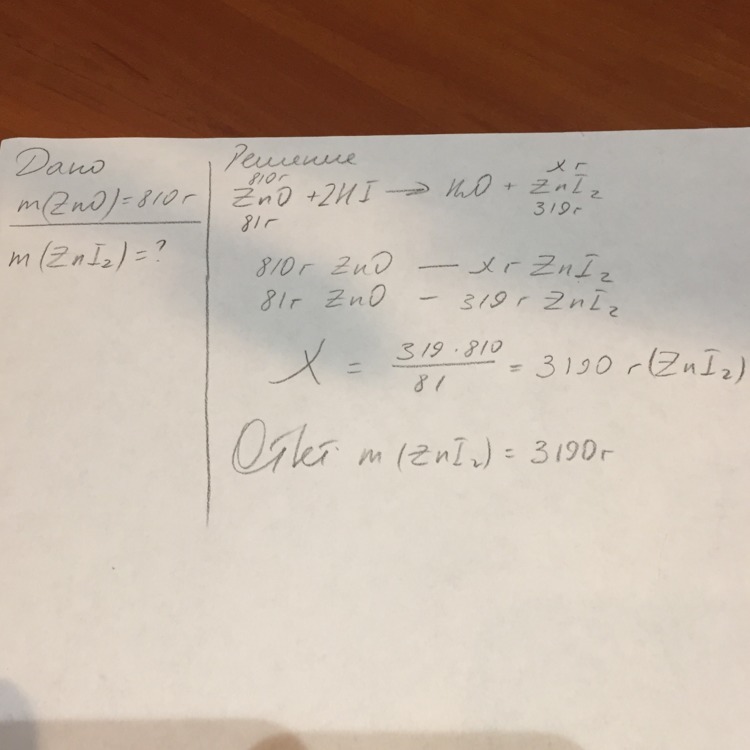 Дано
m(ZnO)=810г
m(ZnI₂)=?
Решение
810г xг
ZnO + 2HI → H₂O + ZnI₂
81г 319г
810г ZnO — xг ZnI₂
81г ZnO — 319г ZnI₂
X = 319·810/81 = 3190 г(ZnI₂)
Ответ m(ZnI₂) = 3190г